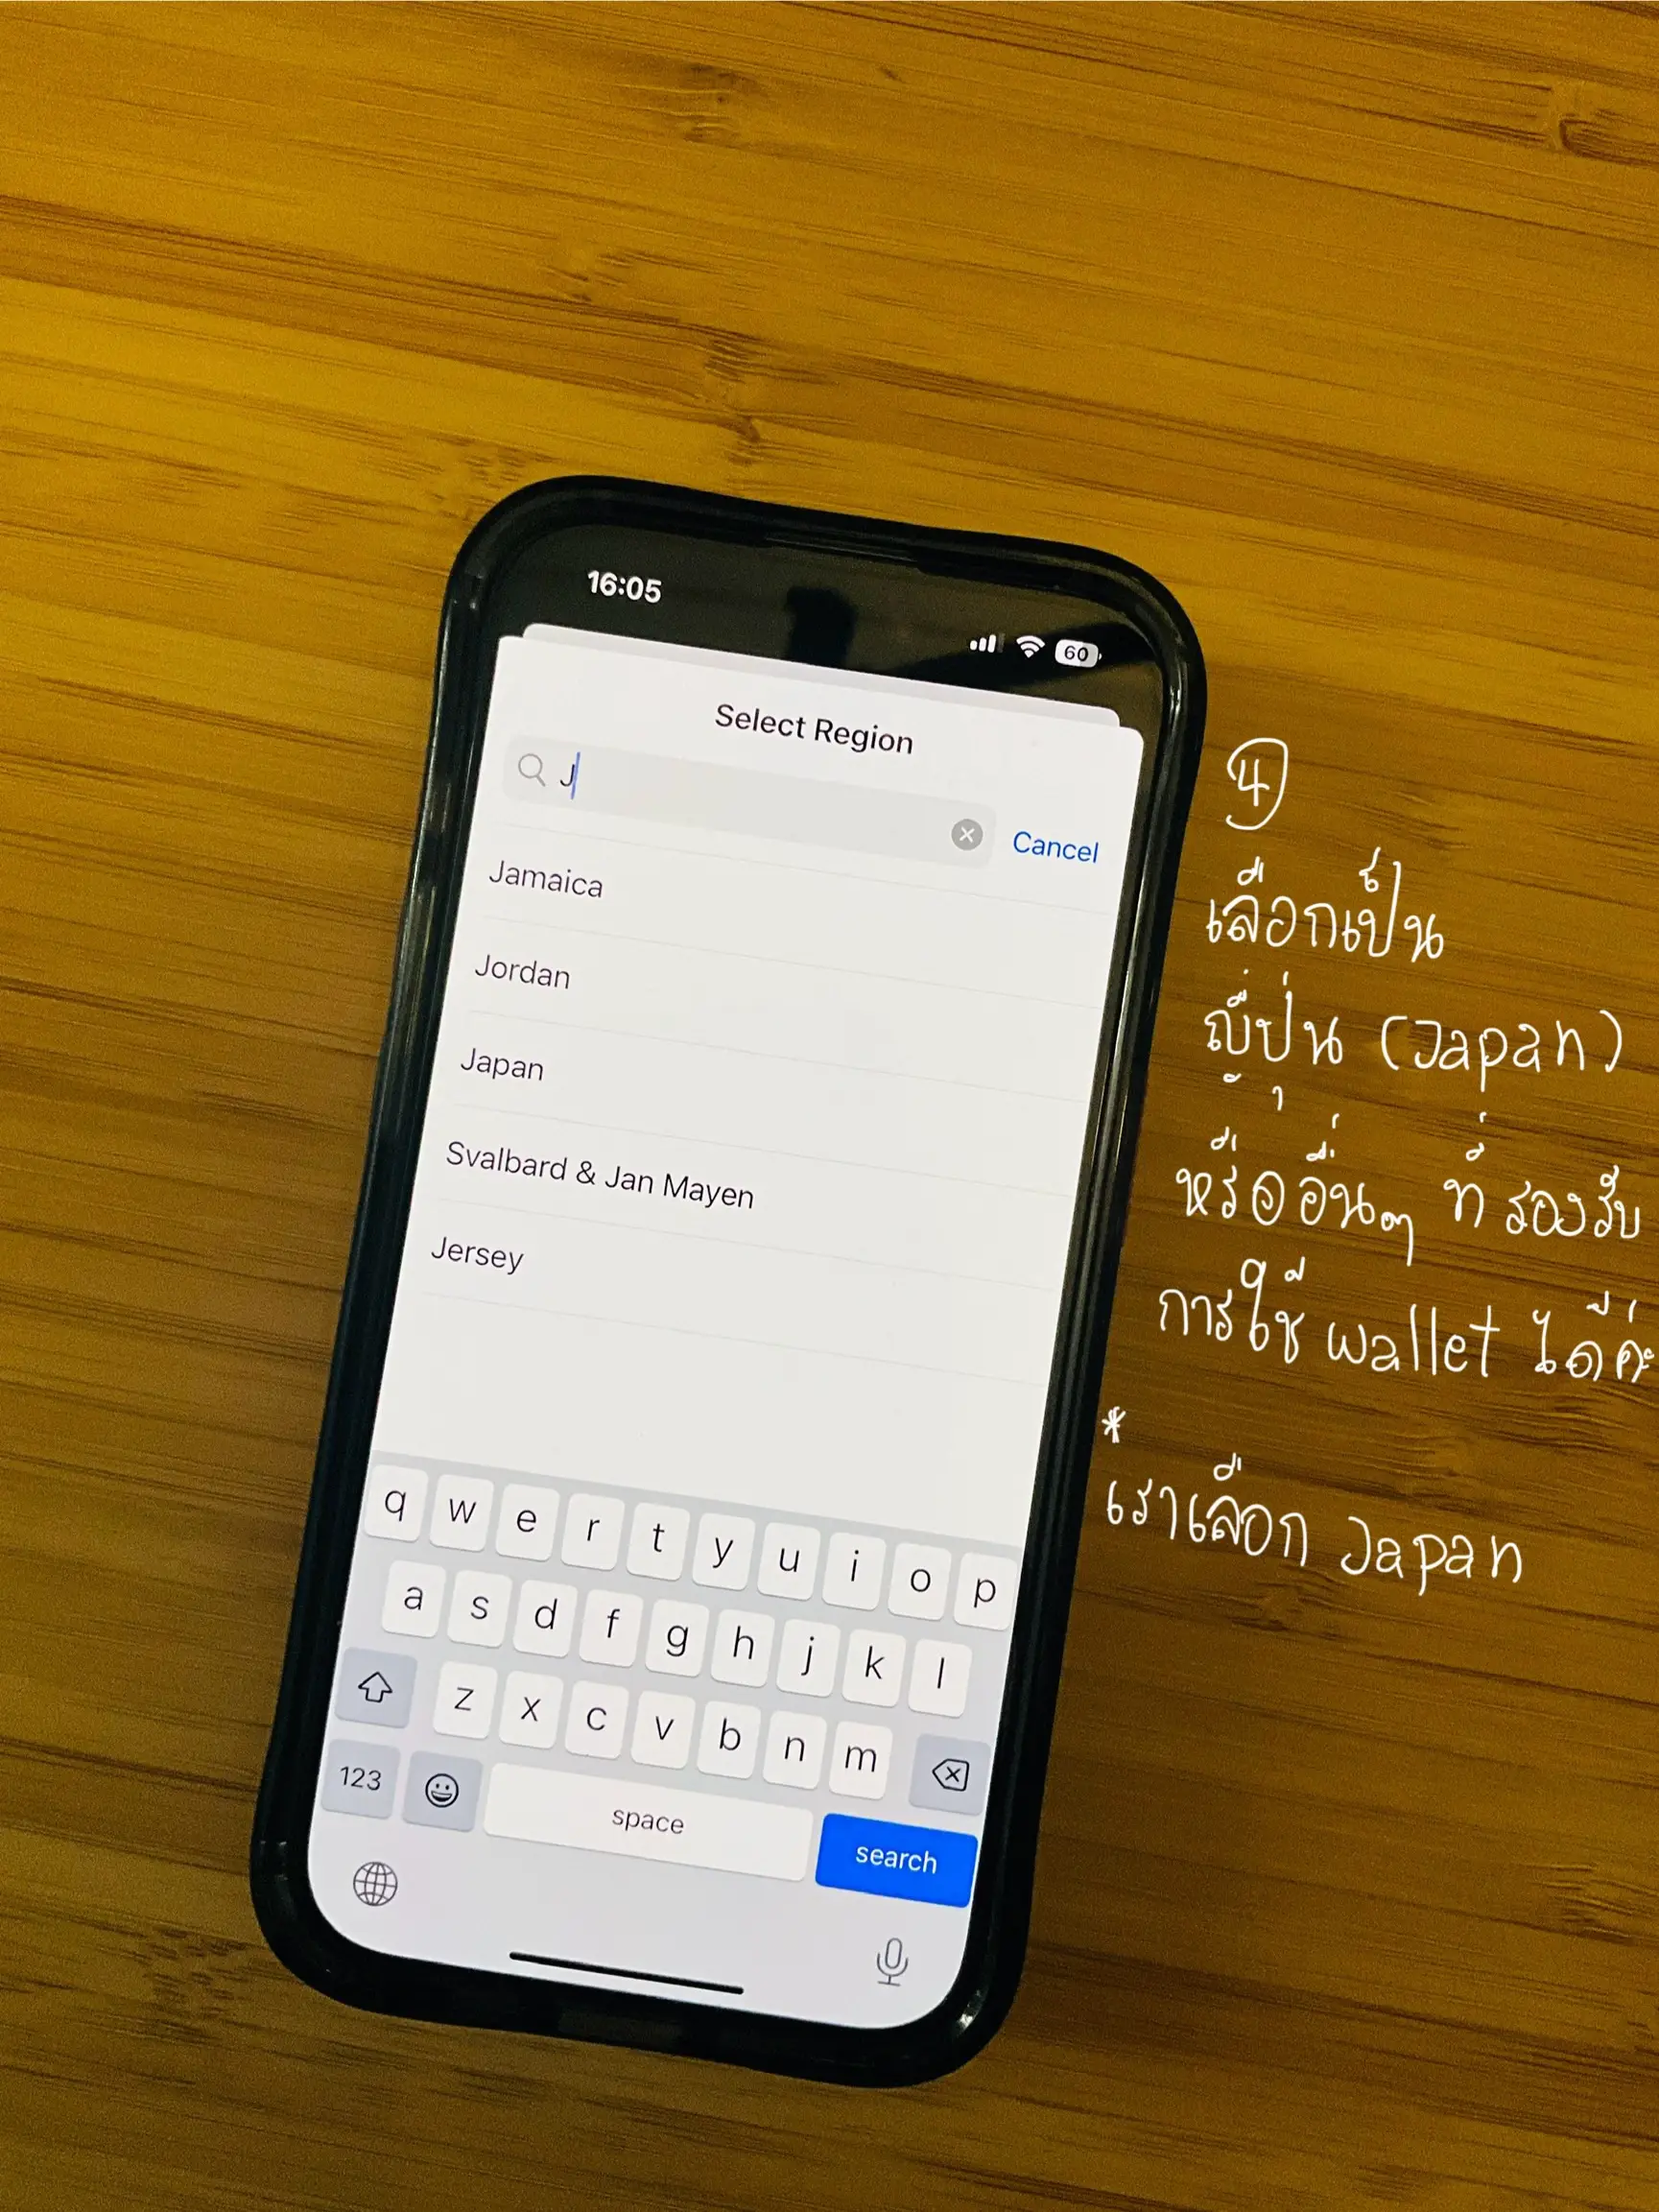 16:05
60
Select Region
J
Cancel
Jamaica
Jordan
Japan
Svalbard & Jan Mayen
Jersey
q w e r t y u i o p
a s d f g h j k l
z x c v b n m
123 space search
4
เลือกเป็น
ญี่ปุ่น (Japan)
หรืออื่นๆ ที่รองรับ
การใช้ wallet ได้ค่ะ
*
เราเลือก Japan